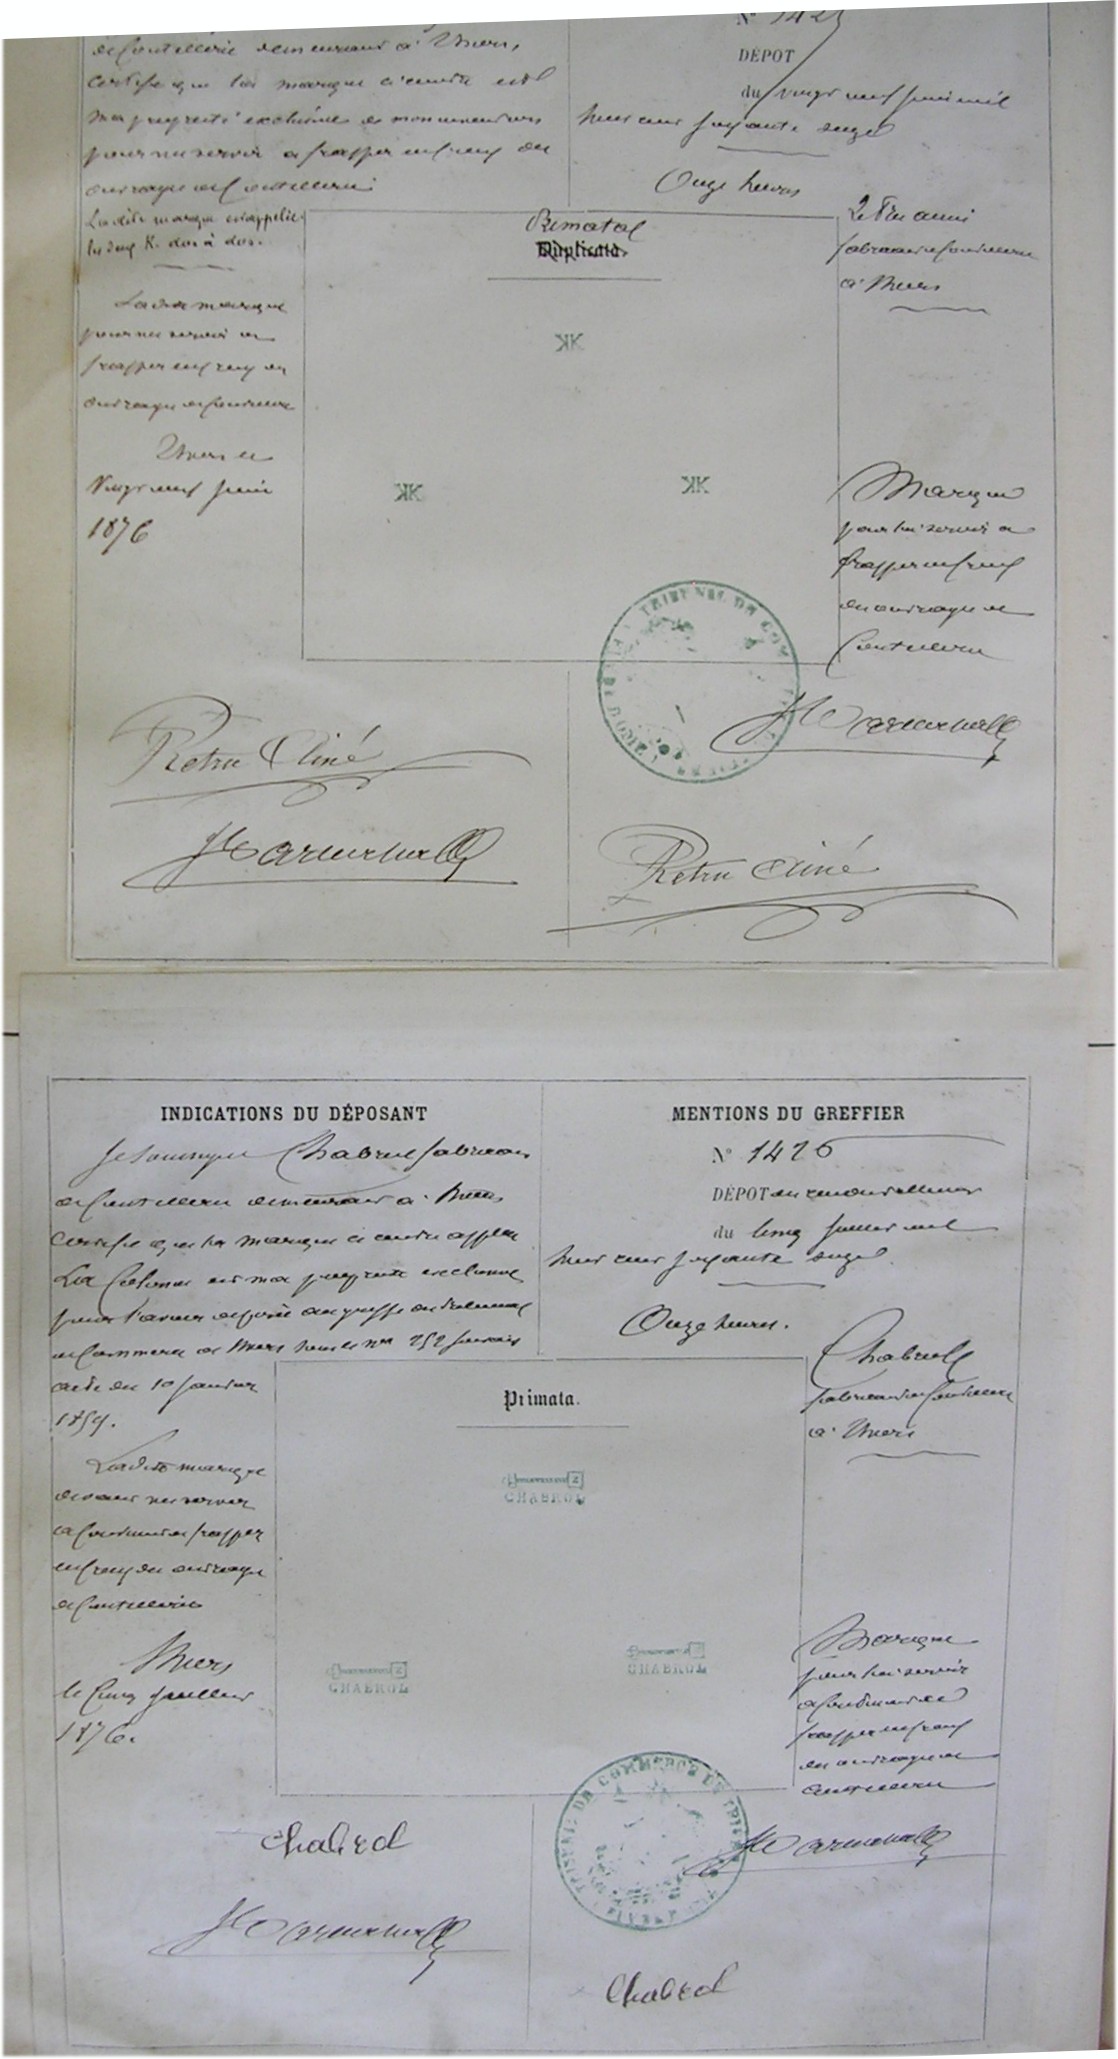 de Coutellerie demeurant à Thiers,
certifie que la marque ci contre est
ma propriété exclusive
pour me servir à frapper
ouvrages de Coutellerie
La dite marque est appelée
les deux K. dos à dos.
La dite marque
pour me servir
frapper
ouvrages de Coutellerie
Thiers le
Vingt neuf Juin
1876
N° 1425
DÉPOT
du vingt neuf Juin mil
huit cent soixante seize
Onze heures
Primata
Duplicata.
KK
KK
KK
Retru ainé
fabricant de Coutellerie
à Thiers
Marque
pour lui servir à
frapper
des ouvrages de
Coutellerie
TRIBUNAL DE COM
Retru Ainé
Retru Ainé
INDICATIONS DU DÉPOSANT
Je soussigné Chabrol fabricant
de Coutellerie demeurant à Thiers
Certifie que la marque ci contre appelée
La Colonne est ma propriété exclusive
pour l'avoir déposée au greffe du tribunal
de Commerce de Thiers sous le no 252 suivant
acte du 10 Janvier
1859.
La dite marque
devant me servir
à Continuer de frapper
ouvrages
de Coutellerie
Thiers
le Cinq Juillet
1876.
MENTIONS DU GREFFIER
N° 1426
DÉPOT en renouvellement
du Cinq Juillet mil
huit cent soixante seize
Onze heures.
Primata.
CHABROL
CHABROL
CHABROL
Chabrol
fabricant de Coutellerie
à Thiers
Marque
pour lui servir
à Continuer de
frapper
des ouvrages de
Coutellerie
TRIBUNAL DE COMMERCE DE THIERS
Chabrol
Chabrol